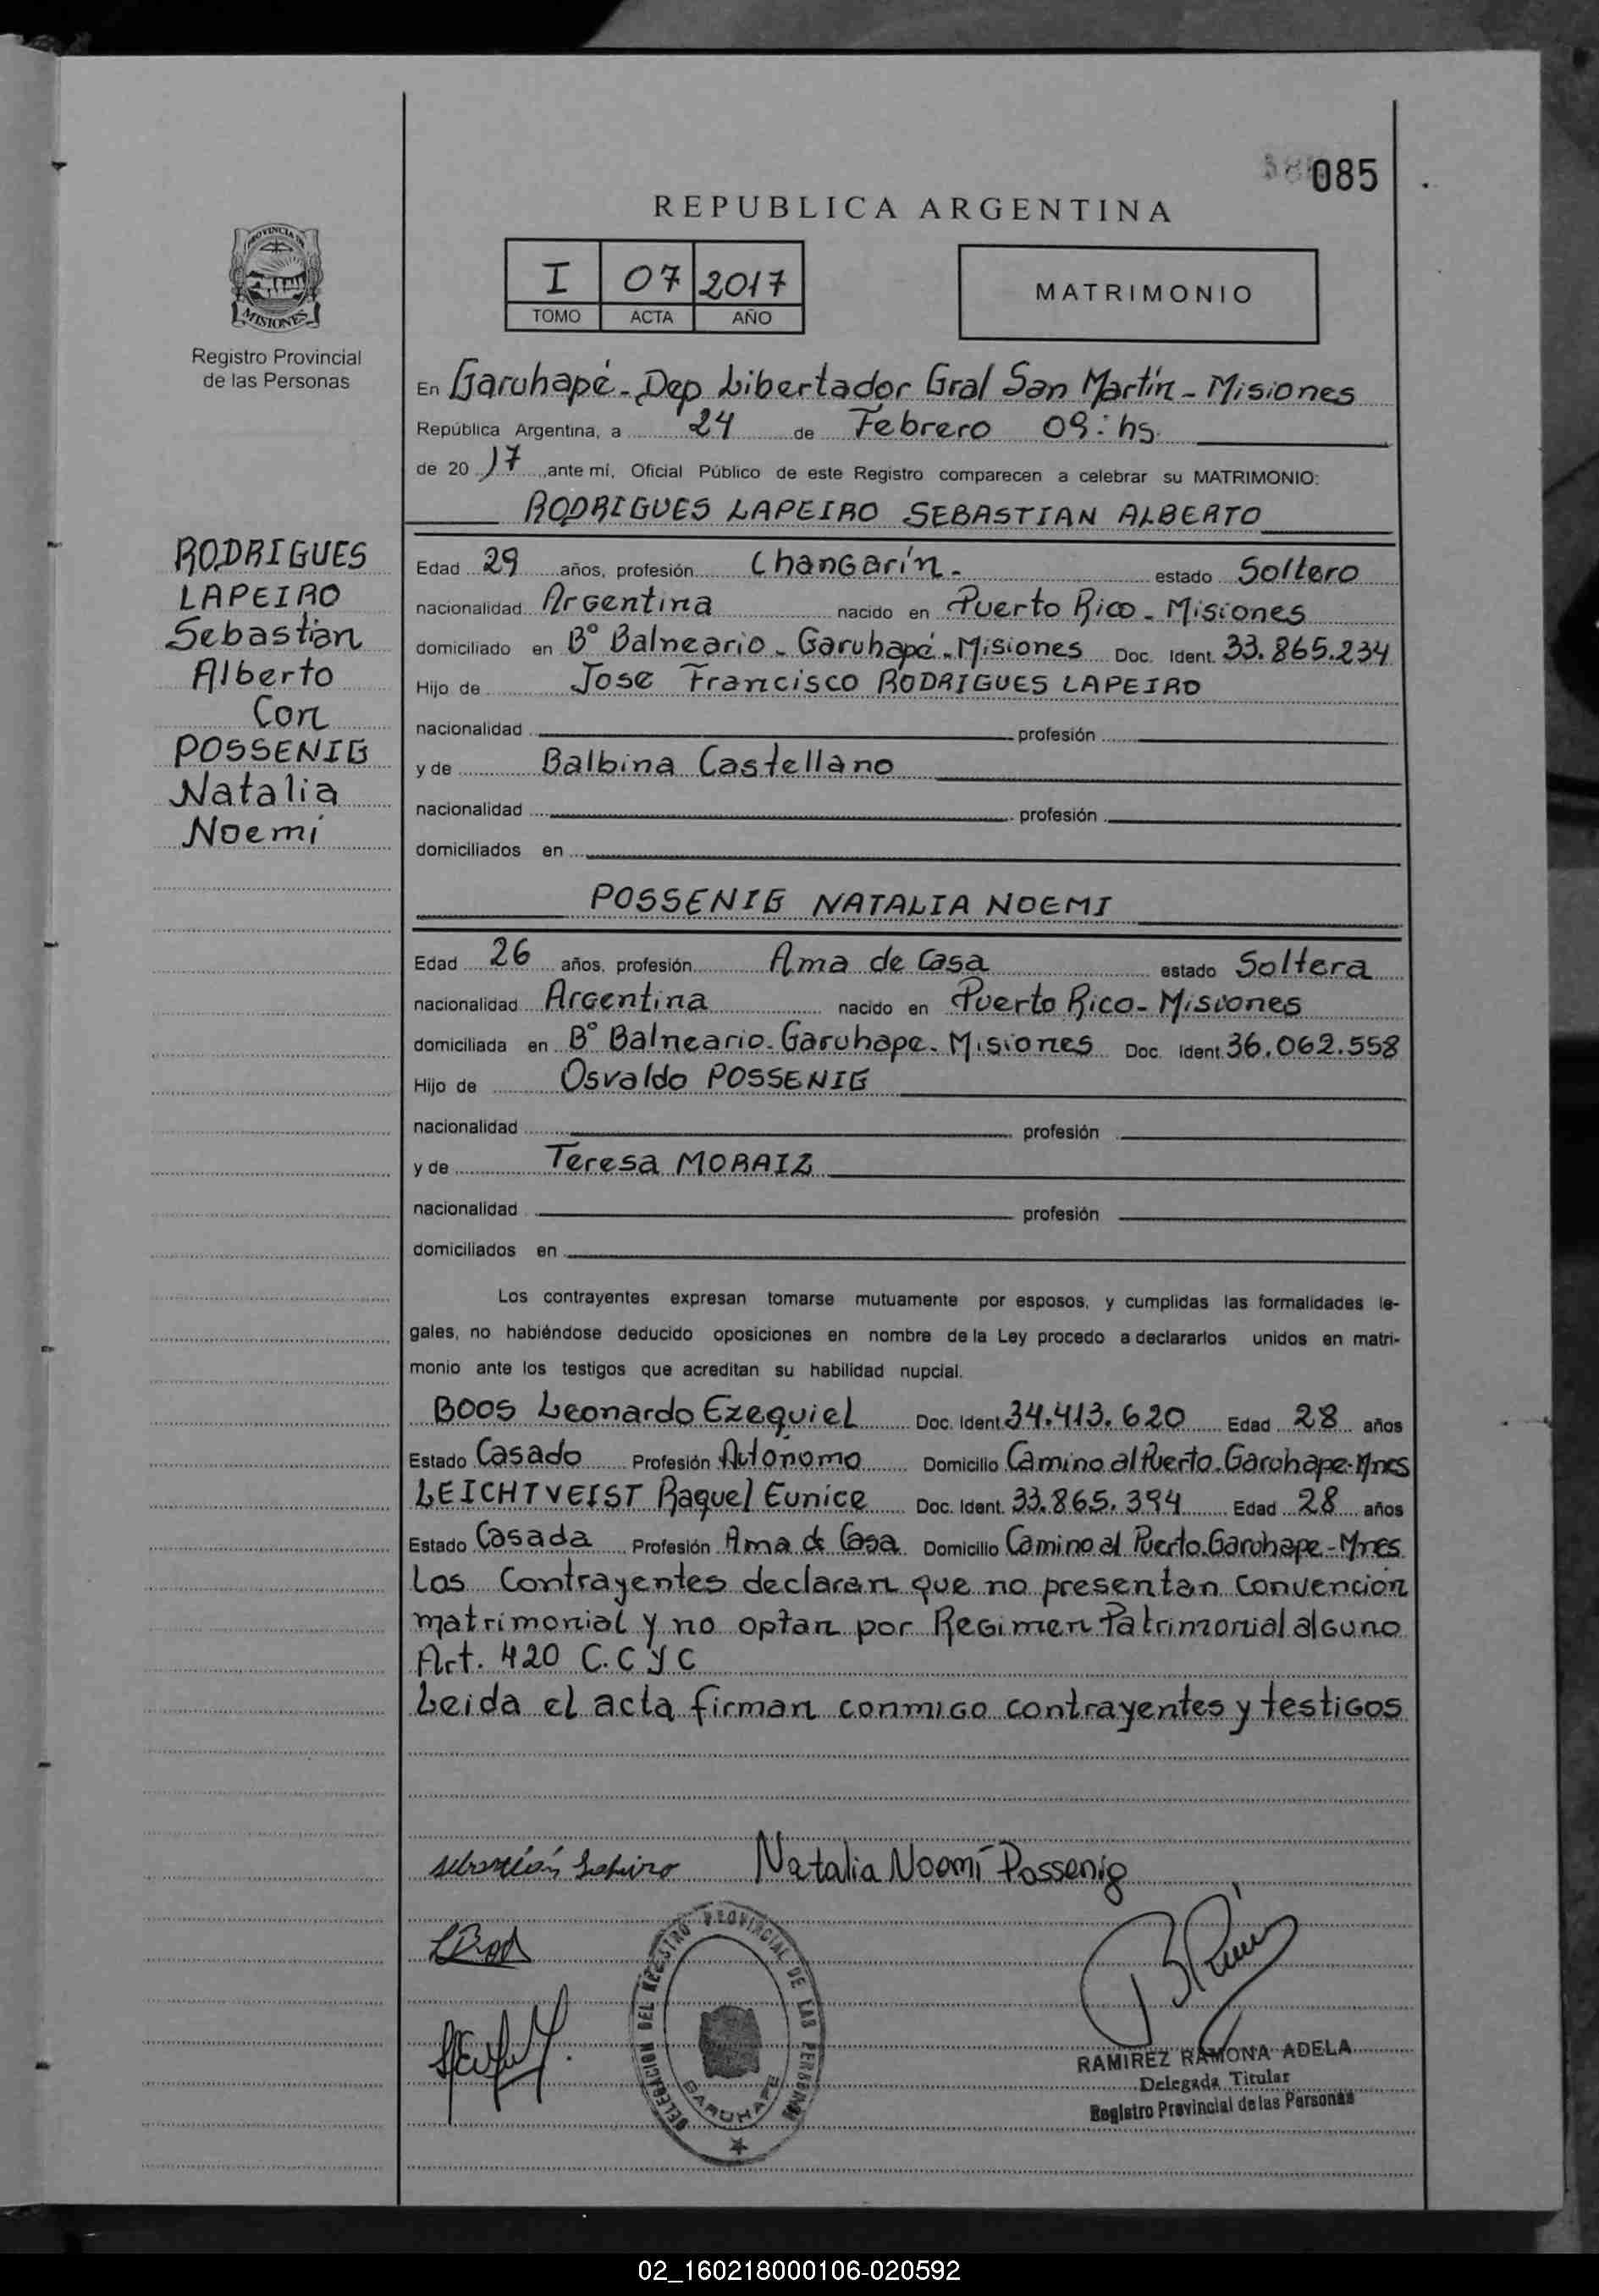 085
REPUBLICA ARGENTINA
PROVINCIA DE
MISIONES
Registro Provincial
de las Personas
I 07 2017
TOMO ACTA AÑO
MATRIMONIO
En Garuhapé - Dep Libertador Gral San Martín - Misiones
República Argentina, a 24 de Febrero 09: hs.
de 20 17 ,ante mí, Oficial Público de este Registro comparecen a celebrar su MATRIMONIO:
RODRIGUES LAPEIRO SEBASTIAN ALBERTO
RODRIGUES
LAPEIRO
Sebastian
Alberto
Con
POSSENIG
Natalia
Noemí
Edad 29 años, profesión Changarín - estado Soltero
nacionalidad Argentina nacido en Puerto Rico - Misiones
domiciliado en B° Balneario - Garuhapé - Misiones Doc. Ident. 33.865.234
Hijo de Jose Francisco RODRIGUES LAPEIRO
nacionalidad profesión
y de Balbina Castellano
nacionalidad profesión
domiciliados en
POSSENIG NATALIA NOEMI
Edad 26 años, profesión Ama de Casa estado Soltera
nacionalidad Argentina nacido en Puerto Rico - Misiones
domiciliada en B° Balneario - Garuhape - Misiones Doc. Ident. 36.062.558
Hijo de Osvaldo POSSENIG
nacionalidad profesión
y de Teresa MORAIZ
nacionalidad profesión
domiciliados en
Los contrayentes expresan tomarse mutuamente por esposos, y cumplidas las formalidades le-
gales, no habiéndose deducido oposiciones en nombre de la Ley procedo a declararlos unidos en matri-
monio ante los testigos que acreditan su habilidad nupcial.
BOOS Leonardo Ezequiel Doc. Ident. 34.413.620 Edad 28 años
Estado Casado Profesión Autónomo Domicilio Camino al Puerto. Garuhape - Mnes
LEICHTVEIST Raquel Eunice Doc. Ident. 33.865.394 Edad 28 años
Estado Casada Profesión Ama de Casa Domicilio Camino al Puerto Garuhape - Mnes
Los Contrayentes declaran que no presentan convencion
matrimonial y no optan por Regimen Patrimonial alguno
Art. 420 C.C y C
Leida el acta firman conmigo contrayentes y testigos
Sebastián Lapeiro Natalia Noemí Possenig
DELEGACION DEL REGISTRO PROVINCIAL DE LAS PERSONAS
GARUHAPE
RAMIREZ RAMONA ADELA
Delegada Titular
Registro Provincial de las Personas
02_160218000106-020592